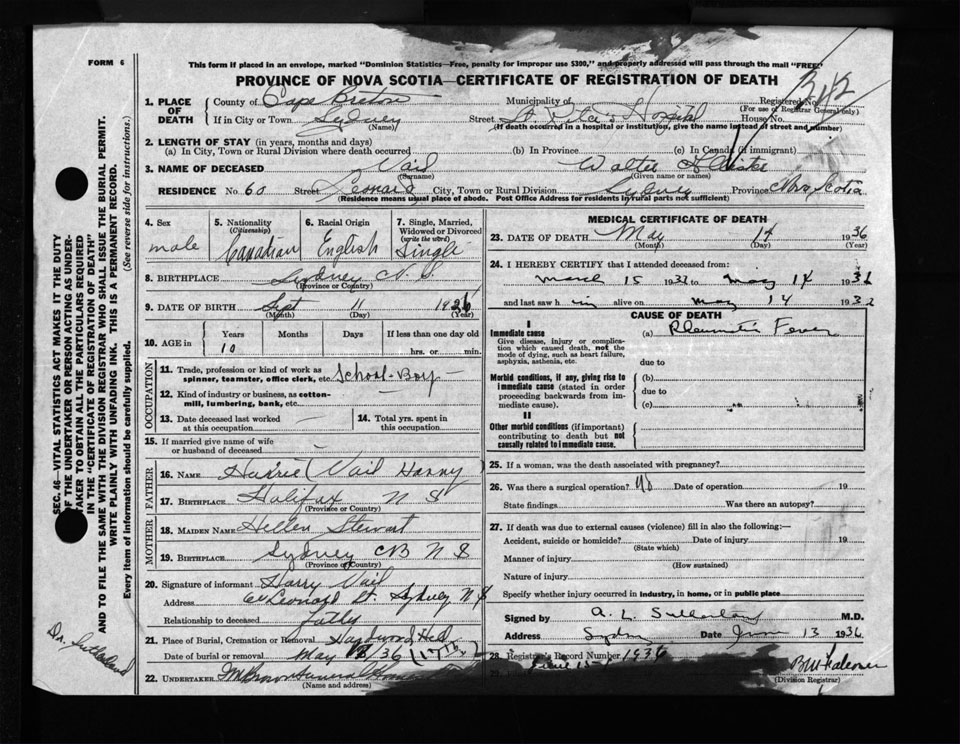 FORM 6
This form if placed in an envelope, marked "Dominion Statistics—Free, penalty for improper use $300," and properly addressed will pass through the mail "FREE"
PROVINCE OF NOVA SCOTIA—CERTIFICATE OF REGISTRATION OF DEATH
1. PLACE OF DEATH
County of Cape Breton Municipality of Registered No.
(For use of Registrar General only)
If in City or Town Sydney Street St. Rita's Hospital House No.
(Name) (If death occurred in a hospital or institution, give the name instead of street and number)
2. LENGTH OF STAY (in years, months and days)
(a) In City, Town or Rural Division where death occurred (b) In Province (c) In Canada (if immigrant)
3. NAME OF DECEASED Vail Walter
(Surname) (Given name or names)
RESIDENCE No. 60 Street Leonard City, Town or Rural Division Sydney Province Nova Scotia
(Residence means usual place of abode. Post Office Address for residents in rural parts not sufficient)
4. Sex
male
5. Nationality
(Citizenship)
Canadian
6. Racial Origin
English
7. Single, Married, Widowed or Divorced
(write the word)
Single
8. BIRTHPLACE Sydney N. S.
(Province or Country)
9. DATE OF BIRTH Sept 11 1926
(Month) (Day) (Year)
10. AGE in Years Months Days If less than one day old
10 hrs. or min.
OCCUPATION
11. Trade, profession or kind of work as spinner, teamster, office clerk, etc. School-Boy
12. Kind of industry or business, as cotton-mill, lumbering, bank, etc.
13. Date deceased last worked at this occupation
14. Total yrs. spent in this occupation
15. If married give name of wife or husband of deceased
FATHER
16. NAME Vail Harry
17. BIRTHPLACE Halifax N S
(Province or Country)
MOTHER
18. MAIDEN NAME Hellen Stewart
19. BIRTHPLACE Sydney CB N S
(Province or Country)
20. Signature of informant Harry Vail
Address 60 Leonard St. Sydney N S
Relationship to deceased
21. Place of Burial, Cremation or Removal
Date of burial or removal May 36 (17th)
22. UNDERTAKER
(Name and address)
MEDICAL CERTIFICATE OF DEATH
23. DATE OF DEATH May 14 1936
(Month) (Day) (Year)
24. I HEREBY CERTIFY that I attended deceased from:
March 15 19 to May 14 1936
and last saw him alive on May 14 19
CAUSE OF DEATH
I
Immediate cause
Give disease, injury or complication which caused death, not the mode of dying, such as heart failure, asphyxia, asthenia, etc.
(a) Rheumatic Fever
due to
Morbid conditions, if any, giving rise to immediate cause (stated in order proceeding backwards from immediate cause).
(b)
due to
(c)
II
Other morbid conditions (if important) contributing to death but not causally related to immediate cause.
25. If a woman, was the death associated with pregnancy?
26. Was there a surgical operation? No Date of operation 19
State findings Was there an autopsy?
27. If death was due to external causes (violence) fill in also the following:—
Accident, suicide or homicide? Date of injury 19
(State which)
Manner of injury
(How sustained)
Nature of injury
Specify whether injury occurred in industry, in home, or in public place
Signed by M.D.
Address Sydney Date June 13 1936
28. Registrar's Record Number 1936
(Division Registrar)
SEC. 46—VITAL STATISTICS ACT MAKES IT THE DUTY OF THE UNDERTAKER OR PERSON ACTING AS UNDERTAKER TO OBTAIN ALL THE PARTICULARS REQUIRED IN THE "CERTIFICATE OF REGISTRATION OF DEATH" AND TO FILE THE SAME WITH THE DIVISION REGISTRAR WHO SHALL ISSUE THE BURIAL PERMIT.
WRITE PLAINLY WITH UNFADING INK. THIS IS A PERMANENT RECORD.
Every item of information should be carefully supplied. (See reverse side for instructions.)
Dr. Sutherland